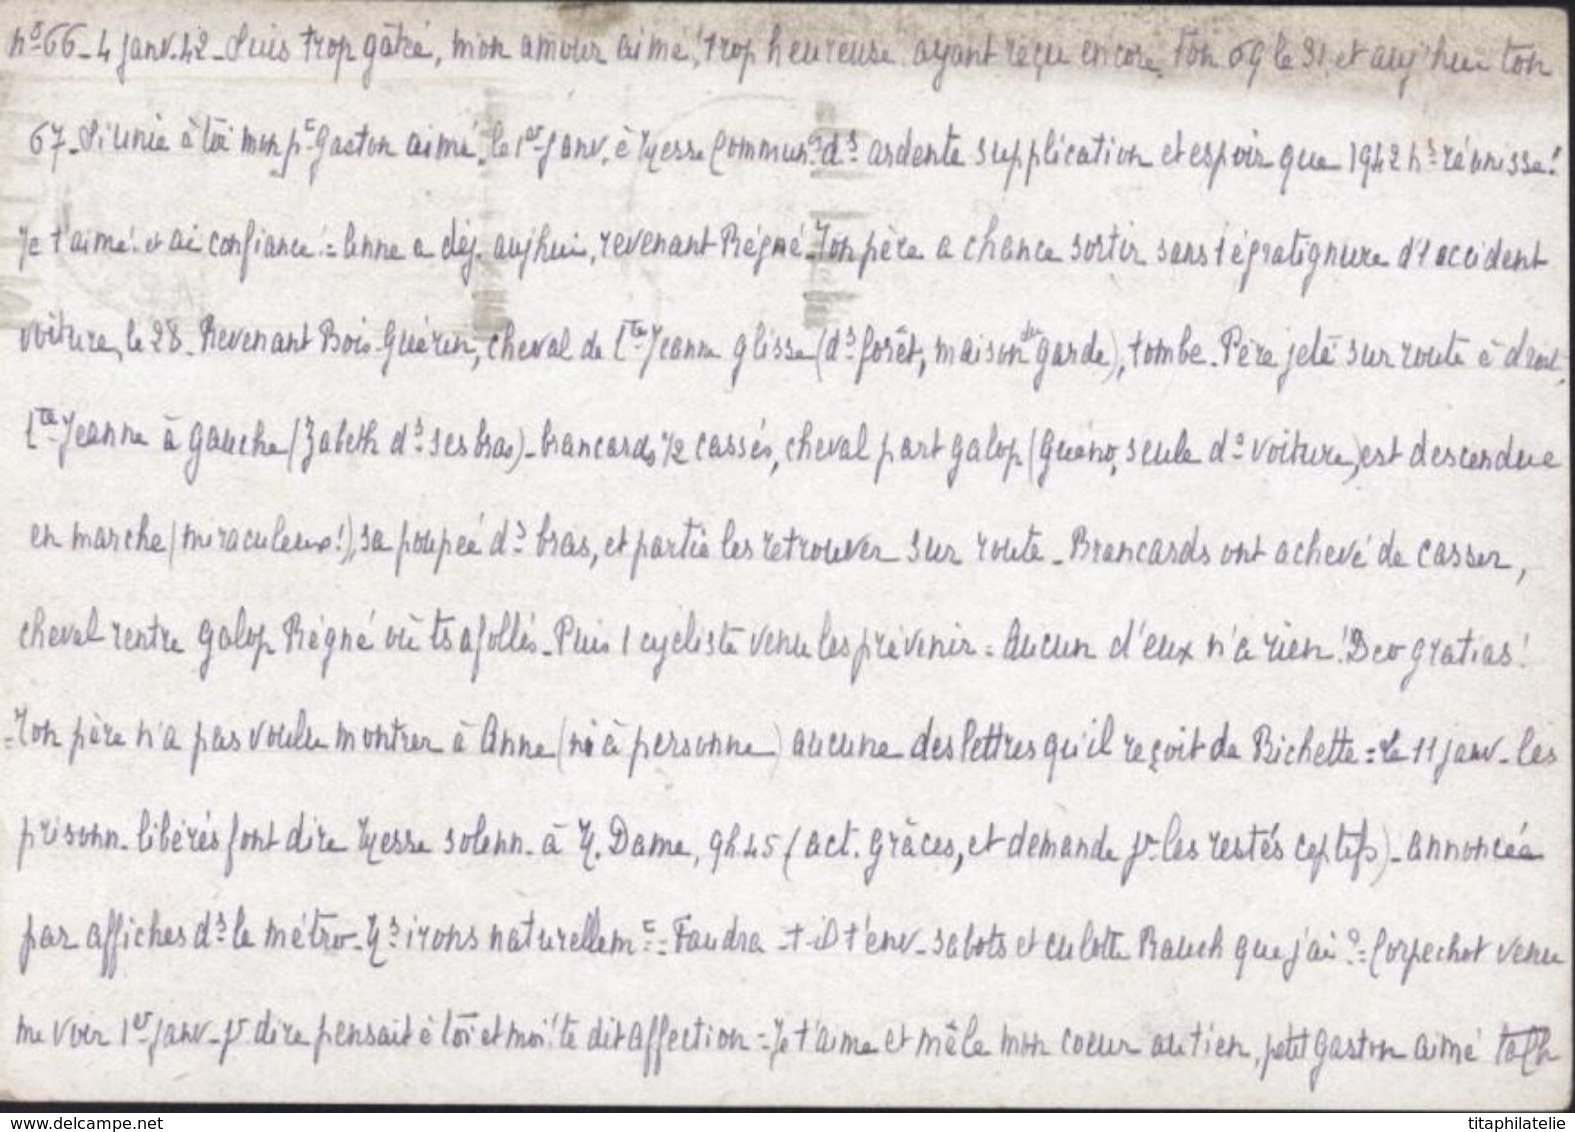 n°66 - 4 janv. 42 - Suis trop gâtée, mon amour aimé, trop heureuse ayant reçu encore ton 69 le 31, et auj'hui ton
67 - Si unie à toi mon pt Gaston aimé, le 1er janv. à Messe Commun. ds ardente supplication et espoir que 1942 ns réunisse!
Je t'aime! et ai confiance! = Anne a déj. auj'hui, revenant Régné. Ton père a chance sortir sans 1 égratignure d'1 accident
voiture, le 28. Revenant Bois-Guérin, cheval de Ctte Jeanne glisse (ds forêt, maison du garde), tombe. Père jeté sur route à droit.,
Ctte Jeanne à gauche (Zabeth ds ses bras) - brancards 1/2 cassés, cheval part galop (Guéno, seule ds voiture, est descendue
en marche (miraculeux!), sa poupée ds bras, et partie les retrouver sur route - Brancards ont achevé de casser,
cheval rentre galop Régné où ts afollés - Puis 1 cycliste venu les prévenir = Aucun d'eux n'a rien! Deo gratias!
= Ton père n'a pas voulu montrer à Anne (ni à personne) aucune des lettres qu'il reçoit de Bichette = Le 11 janv - les
prisonn. libérés font dire Messe solenn. à N. Dame, 9h.45 (act. grâces, et demande pr les restés captifs) - annoncée
par affiches ds le métro - Ns irons naturellemt = Faudra-t-il t'env. sabots et culotte Rauch que j'ai? = Corpechot venu
me voir 1er janv - pr dire pensait à toi et moi! te dit affection = Je t'aime et mêle mon coeur au tien, petit Gaston aimé
www.delcampe.net titaphilatelie